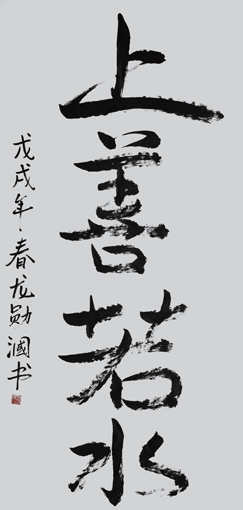 上善若水
戊戌年·春龙勋涠书